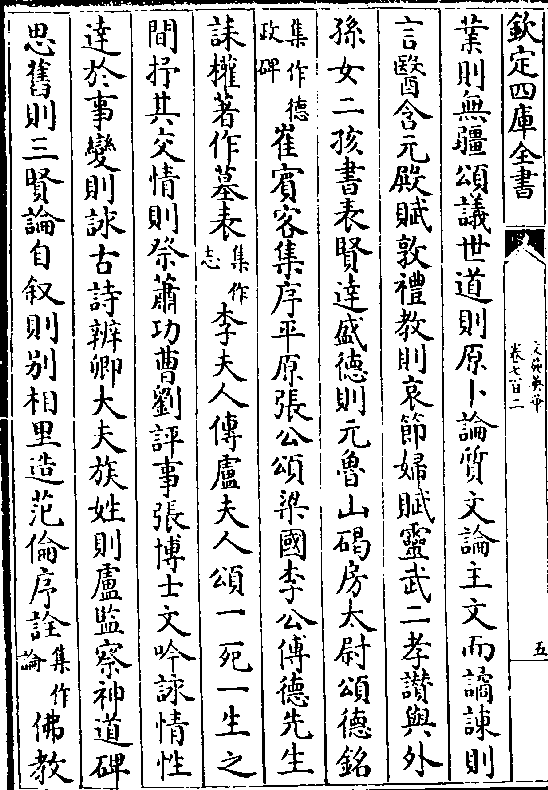 欽定四庫全書
文苑英華
卷七百二
五
業則無疆頌議世道則原卜論質文論主文而譎諫則
言醫含元殿賦敦禮教則哀節婦賦靈武二孝讃與外
孫女二孩書表賢達盛德則元魯山碣房太尉頌德銘
集作德政碑崔賓客集序平原張公頌梁國李公傳德先生
誄權著作墓表集作志李夫人傳盧夫人頌一死一生之
間抒其交情則祭蕭功曹劉評事張博士文吟詠情性
達於事變則詠古詩辨卿大夫族姓則盧監察神道碑
思舊則三賢論自叙則别相里造范倫序詮集作論佛教